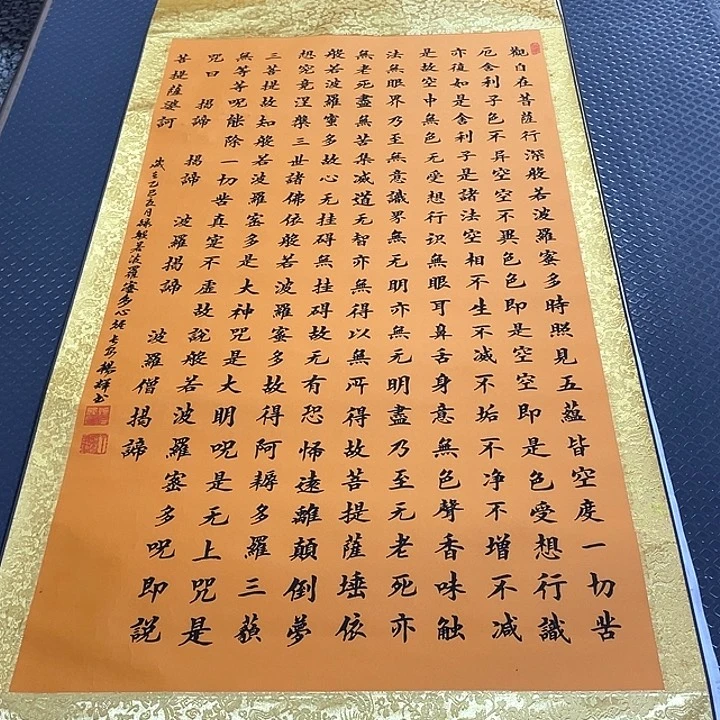 觀自在菩薩行深般若波羅蜜多時照見五蘊皆空度一切苦
厄舍利子色不异空空不異色色即是空空即是色受想行識
亦復如是舍利子是諸法空相不生不减不垢不净不增不减
是故空中無色无受想行识無眼耳鼻舌身意無色聲香味触
法無眼界乃至無意識界無无明亦無无明盡乃至无老死亦
無老死盡無苦集滅道无智亦無得以無所得故菩提薩埵依
般若波羅蜜多故心无挂碍無挂碍故无有恐怖遠離顛倒夢
想究竟涅槃三世諸佛依般若波羅蜜多故得阿耨多羅三藐
三菩提故知般若波羅蜜多是大神咒是大明呪是无上咒是
無等等呪能除一切苦真實不虛故說般若波羅蜜多呪即說
咒曰 揭諦 揭諦 波羅揭諦 波羅僧揭諦
菩提薩婆訶
歲在乙巳五月錄般若波羅蜜多心經